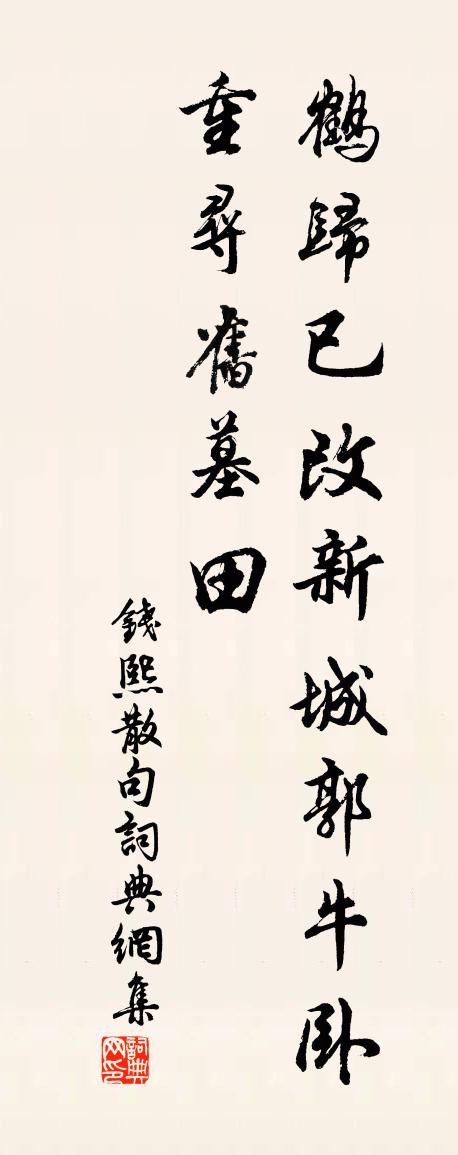 鶴歸已改新城郭牛臥
重尋舊墓田
錢熙散句詞典網集
詞典网印